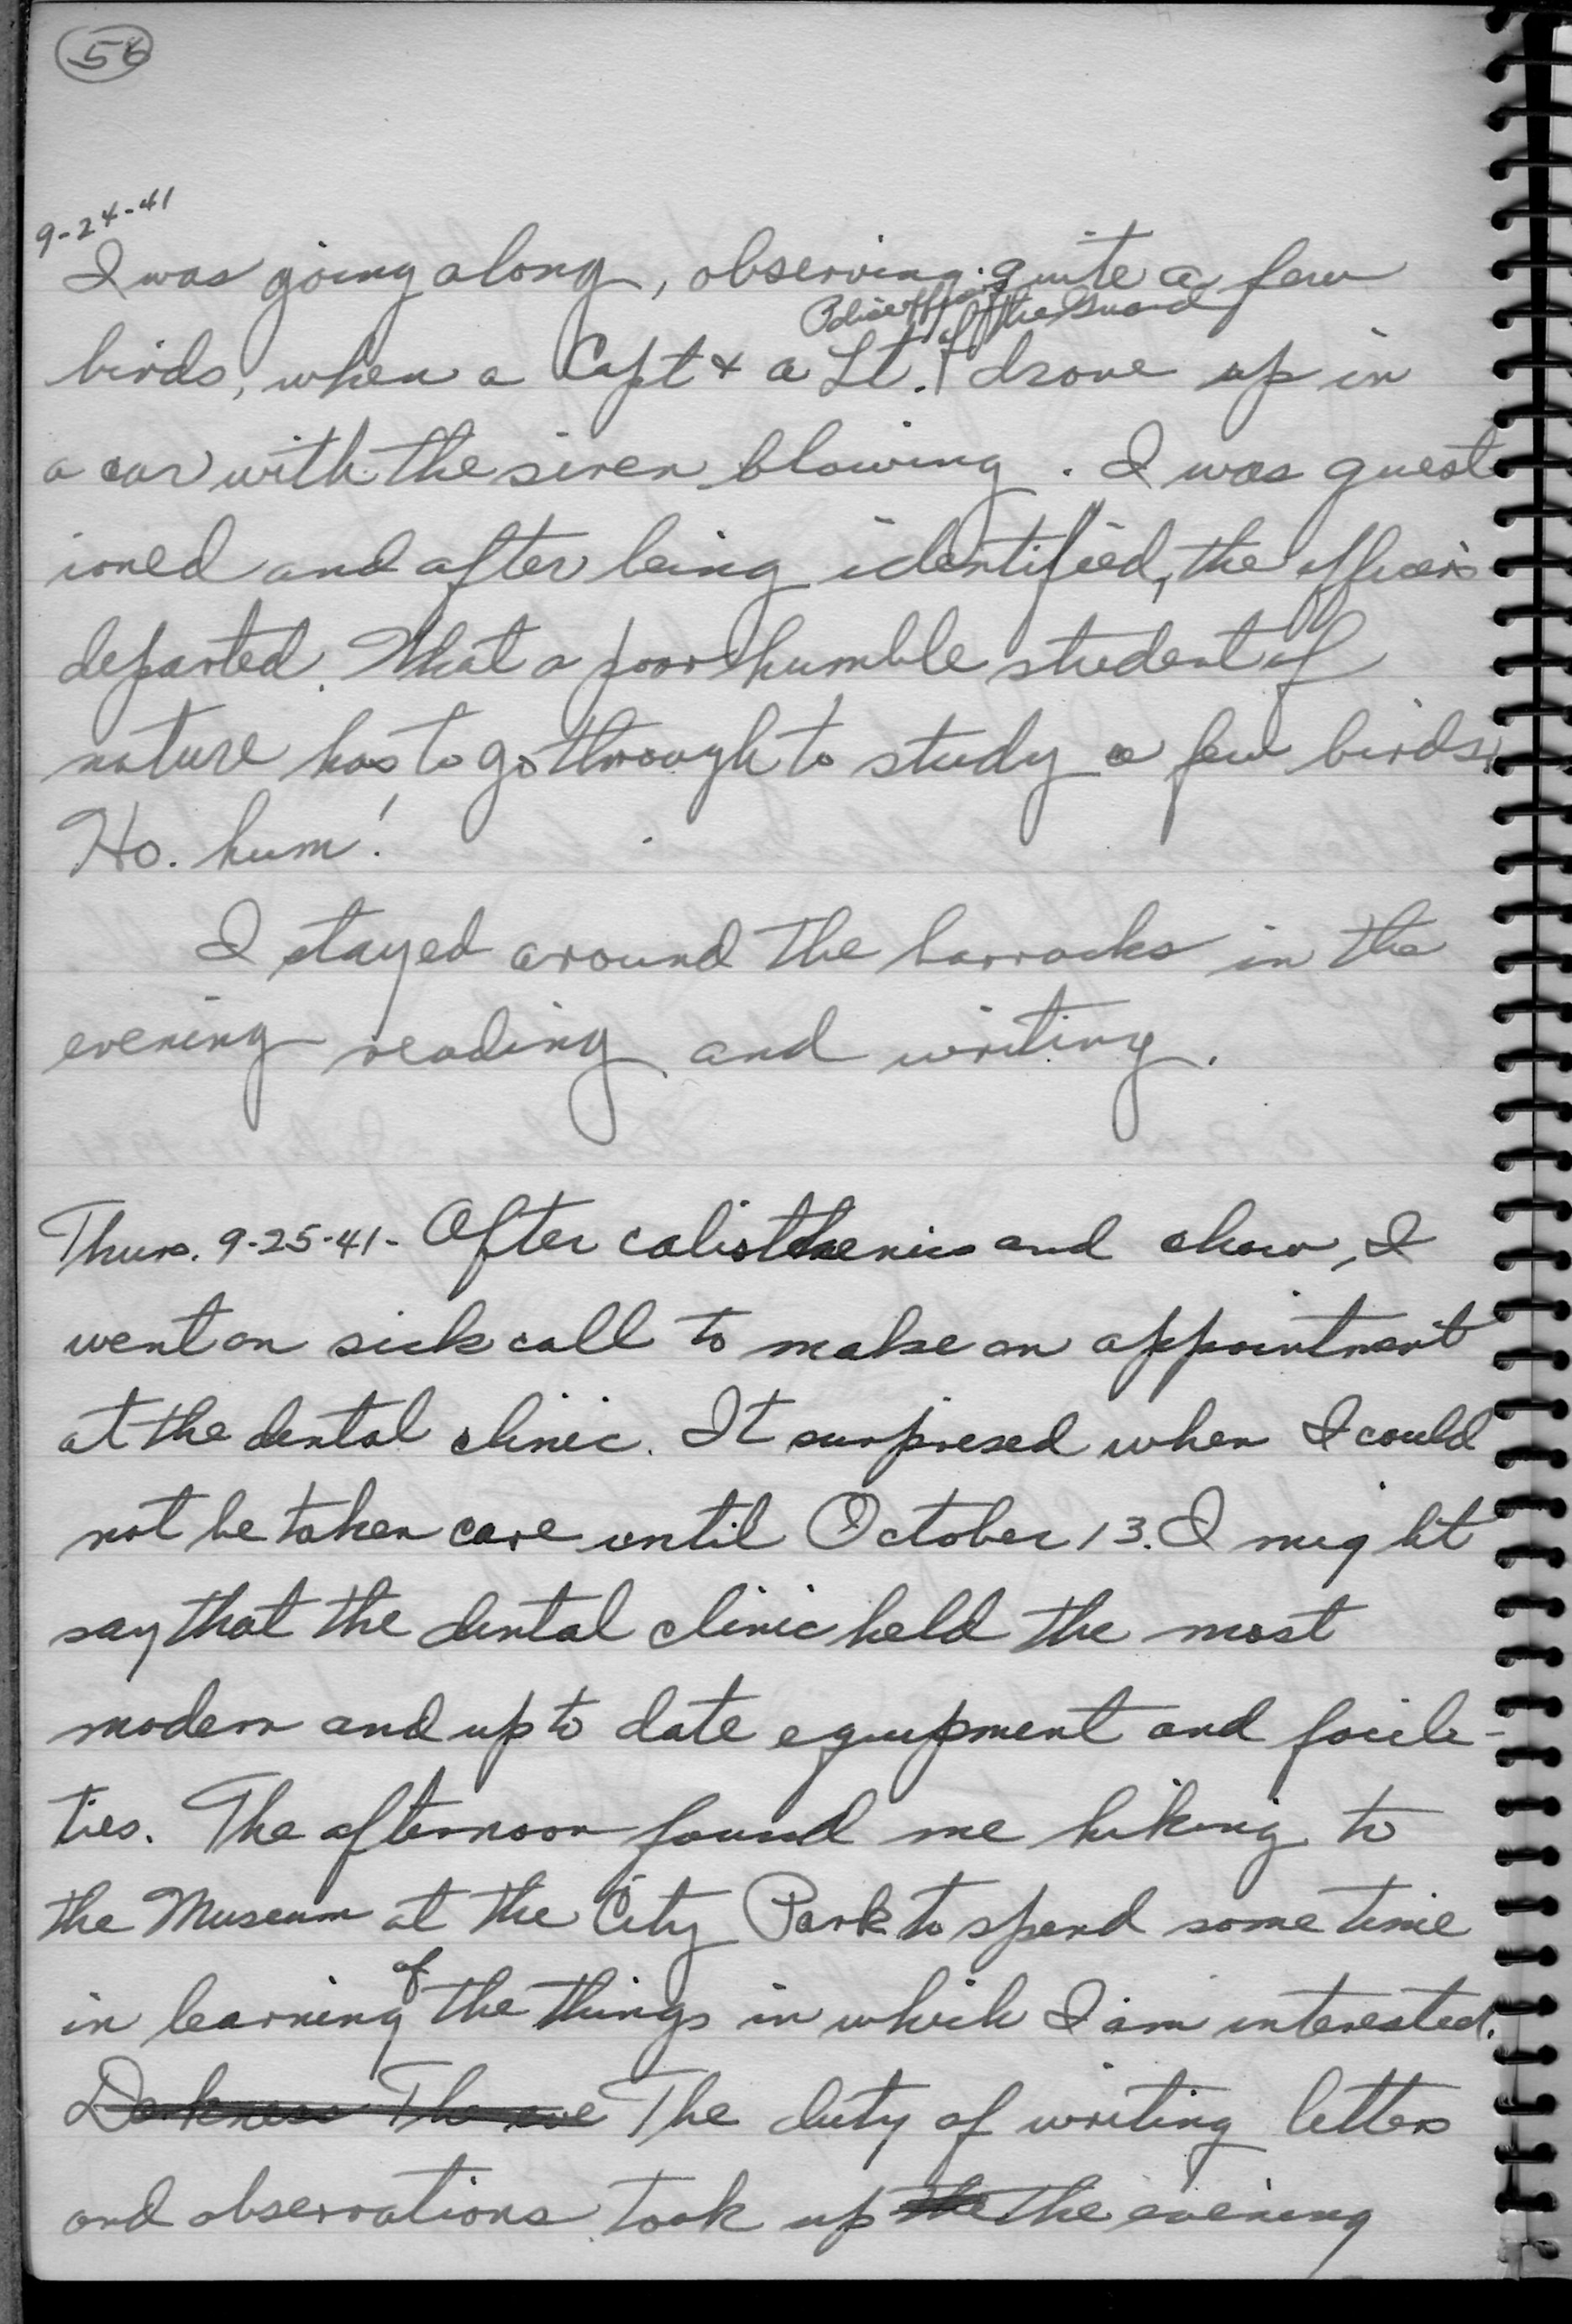 56
9-24-41
I was going along, observing quite a few
Police officers of the Guard
birds, when a Capt + a Lt. drove up in
a car with the siren blowing. I was quest
ioned and after being identified, the officers
departed. What a poor humble student of
nature has to go through to study a few birds.
Ho. hum!
I stayed around the barracks in the
evening reading and writing.
Thurs. 9-25-41- After calisthenics and chow, I
went on sick call to make an appointment
at the dental clinic. It surprised when I could
not be taken care until October 13. I might
say that the dental clinic held the most
modern and up to date equipment and facili-
ties. The afternoon found me hiking to
the Museum at the City Park to spend some time
of
in learning the things in which I am interested.
Darkness The eve The duty of writing letters
and observations took up the the evening